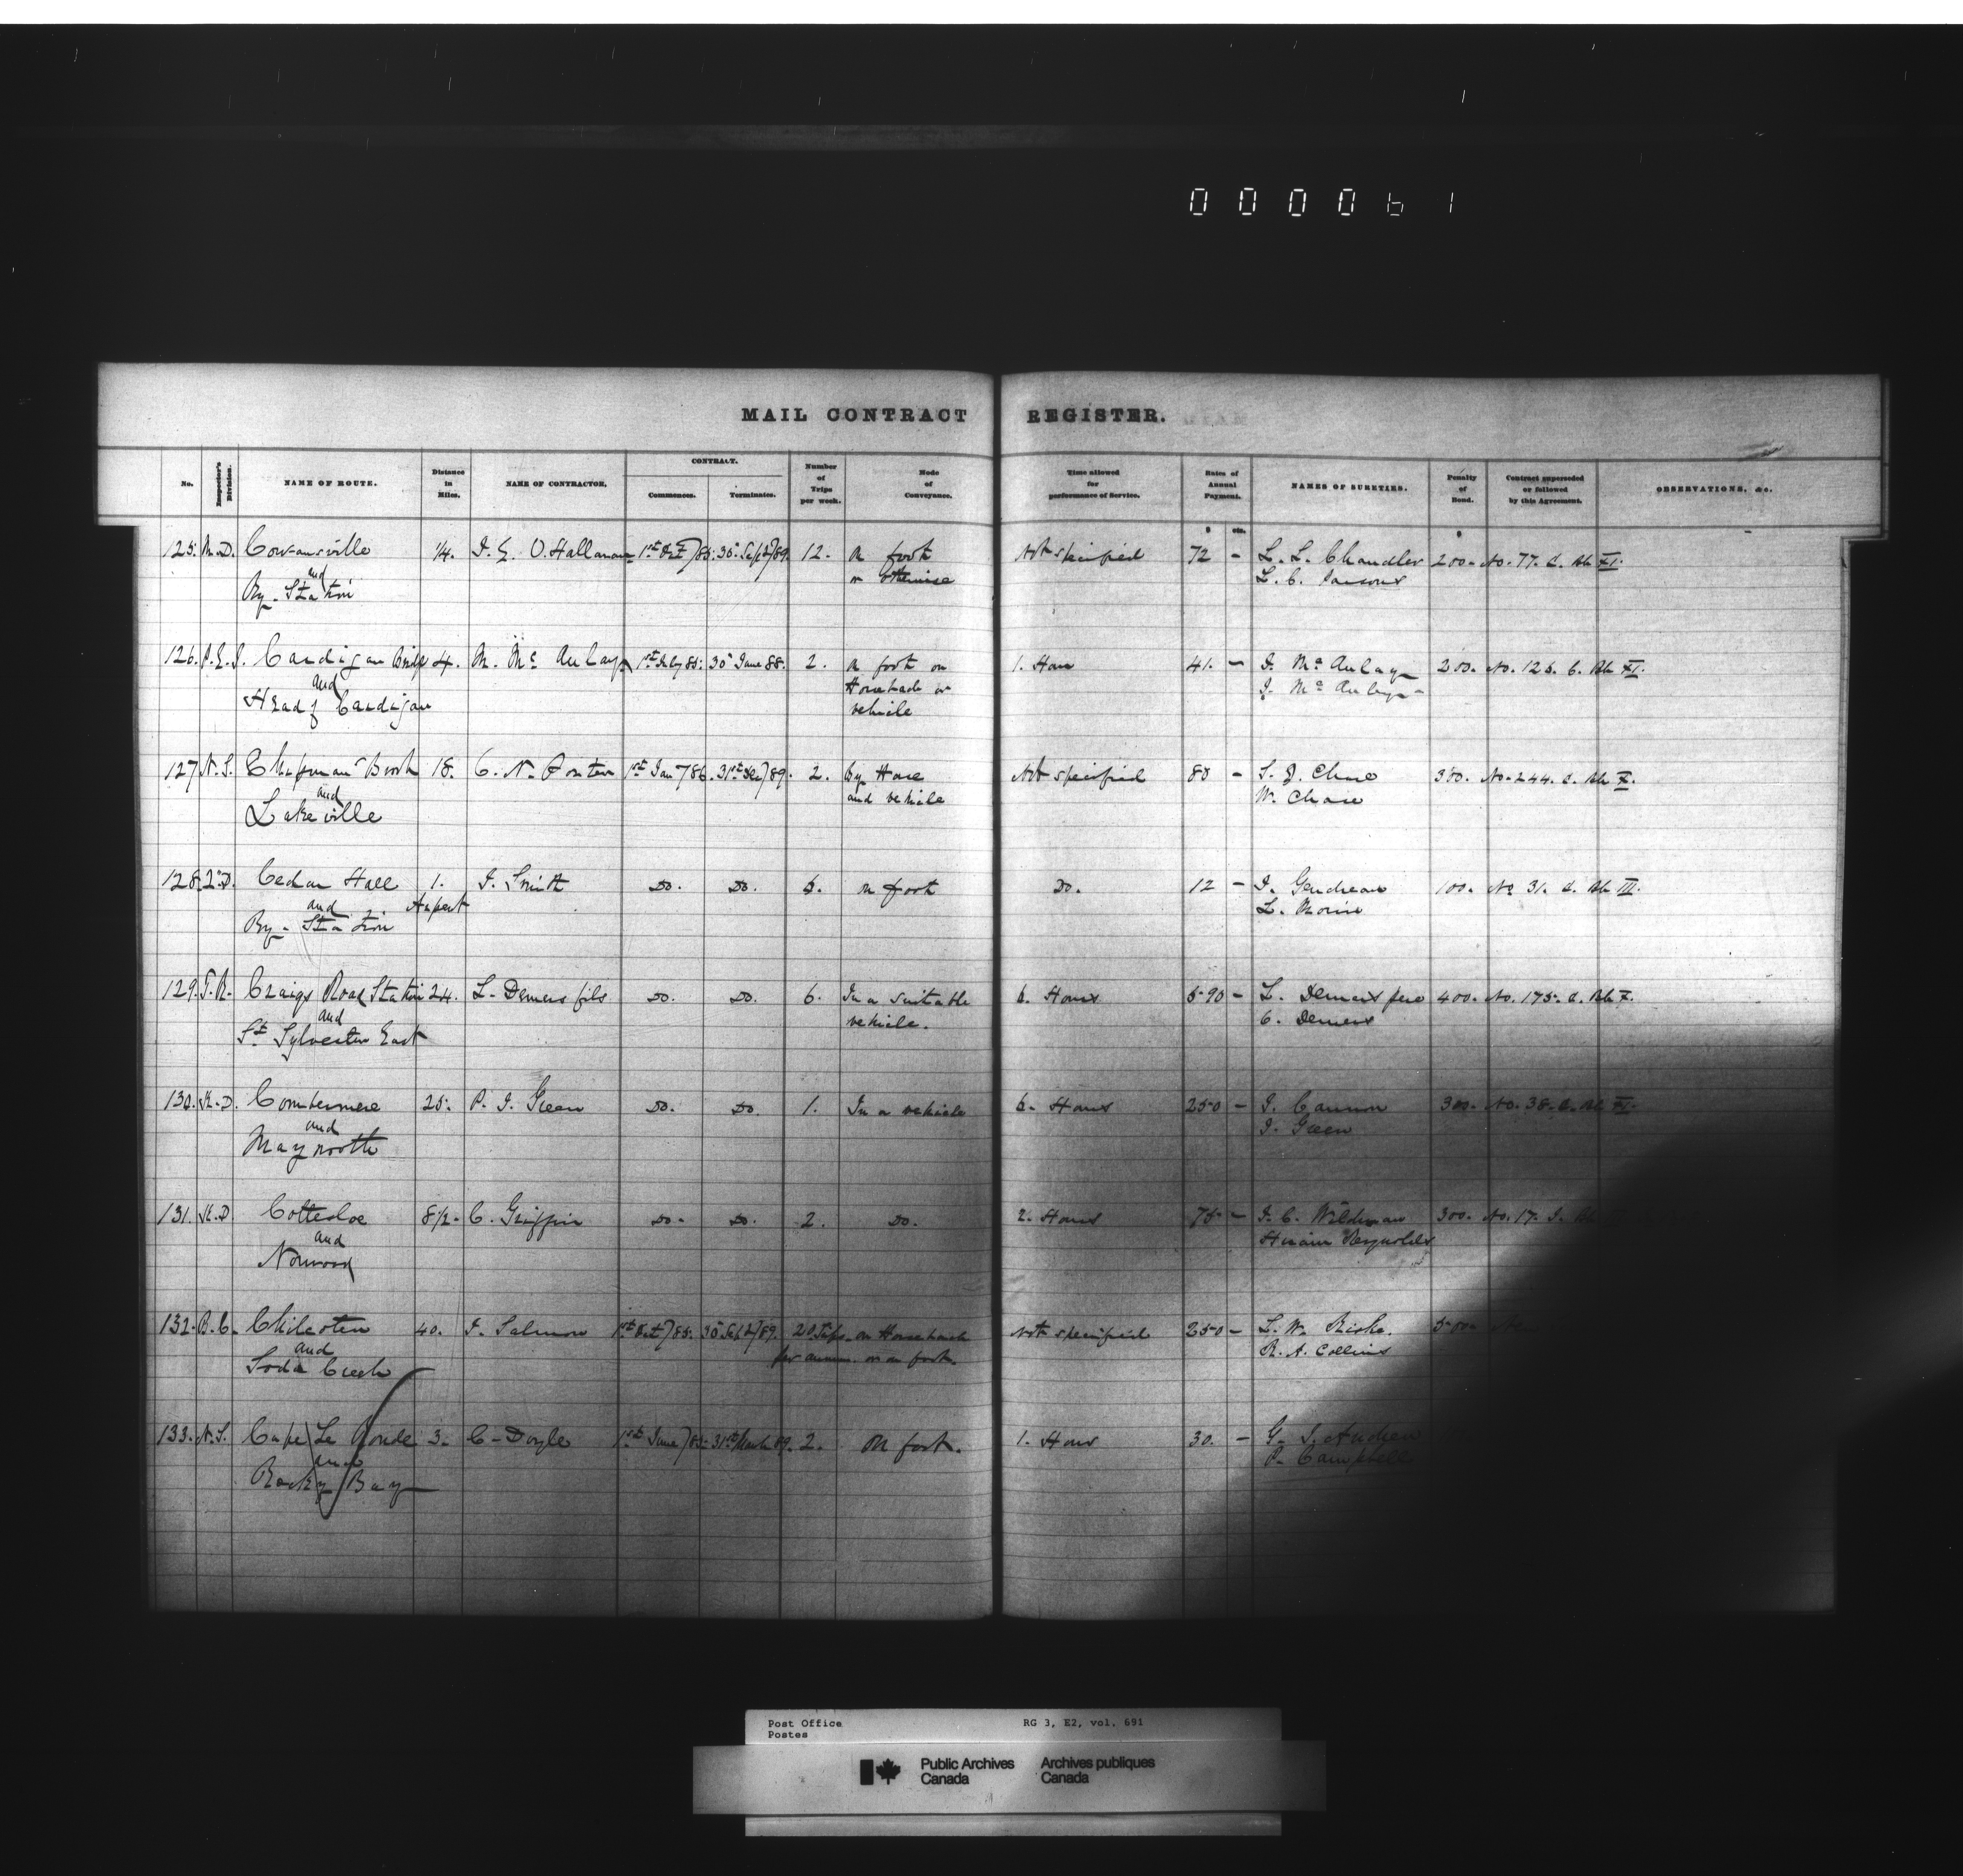 000061
MAIL CONTRACT REGISTER.
No. Inspector's Division. NAME OF ROUTE. Distance in Miles. NAME OF CONTRACTOR. CONTRACT. Commences. Terminates. Number of Trips per week. Mode of Conveyance. Time allowed for performance of Service. Rates of Annual Payment. NAMES OF SURETIES. Penalty of Bond. Contract superseded or followed by this Agreement. OBSERVATIONS, &c.
$ cts. $
125. M.D. Cowansville 1/4. J. E. O.Halloran 1st Oct/85. 30th Sept/89. 12. on foot Not specified 72 - L. L. Chandler 200. No. 77. C. Bk XI.
and or otherwise L. C. Parsons
Ry. Station
126. P.E.I. Cardigan Bridge 4. M. Mc Aulay 1st July 85. 30th June 88. 2. on foot on 1. Hour 41. - J. Mc Aulay 200. No. 125. C. Bk XI.
and Horseback or J. Mc Aulay
Head of Cardigan vehicle
127. N.S. Chapman Brook 18. C. N. Porter 1st Jan/86. 31st Dec/89. 2. by Horse Not specified 80 - S. J. Chase 300. No. 244. C. Bk X.
and and vehicle W. Chase
Lakeville
128. 2.D. Cedar Hall 1. J. Smith Do. Do. 6. on foot Do. 12 - J. Gendreau 100. No 31. C. Bk III.
and L. Morin
Ry. Station
129. T.R. Craigs Road Station 24. L. Demers fils Do. Do. 6. In a suitable 6. Hours 590 - L. Demers pere 400. No. 175. C. Bk X.
and vehicle. C. Demers
St Sylvester East
130. K.D. Combermere 25. P. J. Green Do. Do. 1. In a vehicle 6. Hours 250 - J. Cannon 300. No. 38. C. Bk XI.
and J. Green
Maynooth
131. K.D Cottesloe 8 1/2. C. Griffin Do. Do. 2. Do. 2. Hours 75 - J. C. Wildman 300. No. 17.
and Hiram Reynolds
Norwood
132. B.C. Chilcoten 40. J. Salmon 1st Oct/85. 30th Sept/89. 20 Trips on Horseback Not specified 250 - L. W. 500.
and per annum. or on foot R. A. Collins
Soda Creek
133. N.S. Cape Le Ronde 3. C. Doyle 1st June/85. 31st March 89. 2. on foot. 1. Hour 30. - G.
and P. Campbell
Rocky Bay
Post Office RG 3, E2, vol. 691
Postes
Public Archives Archives publiques
Canada Canada